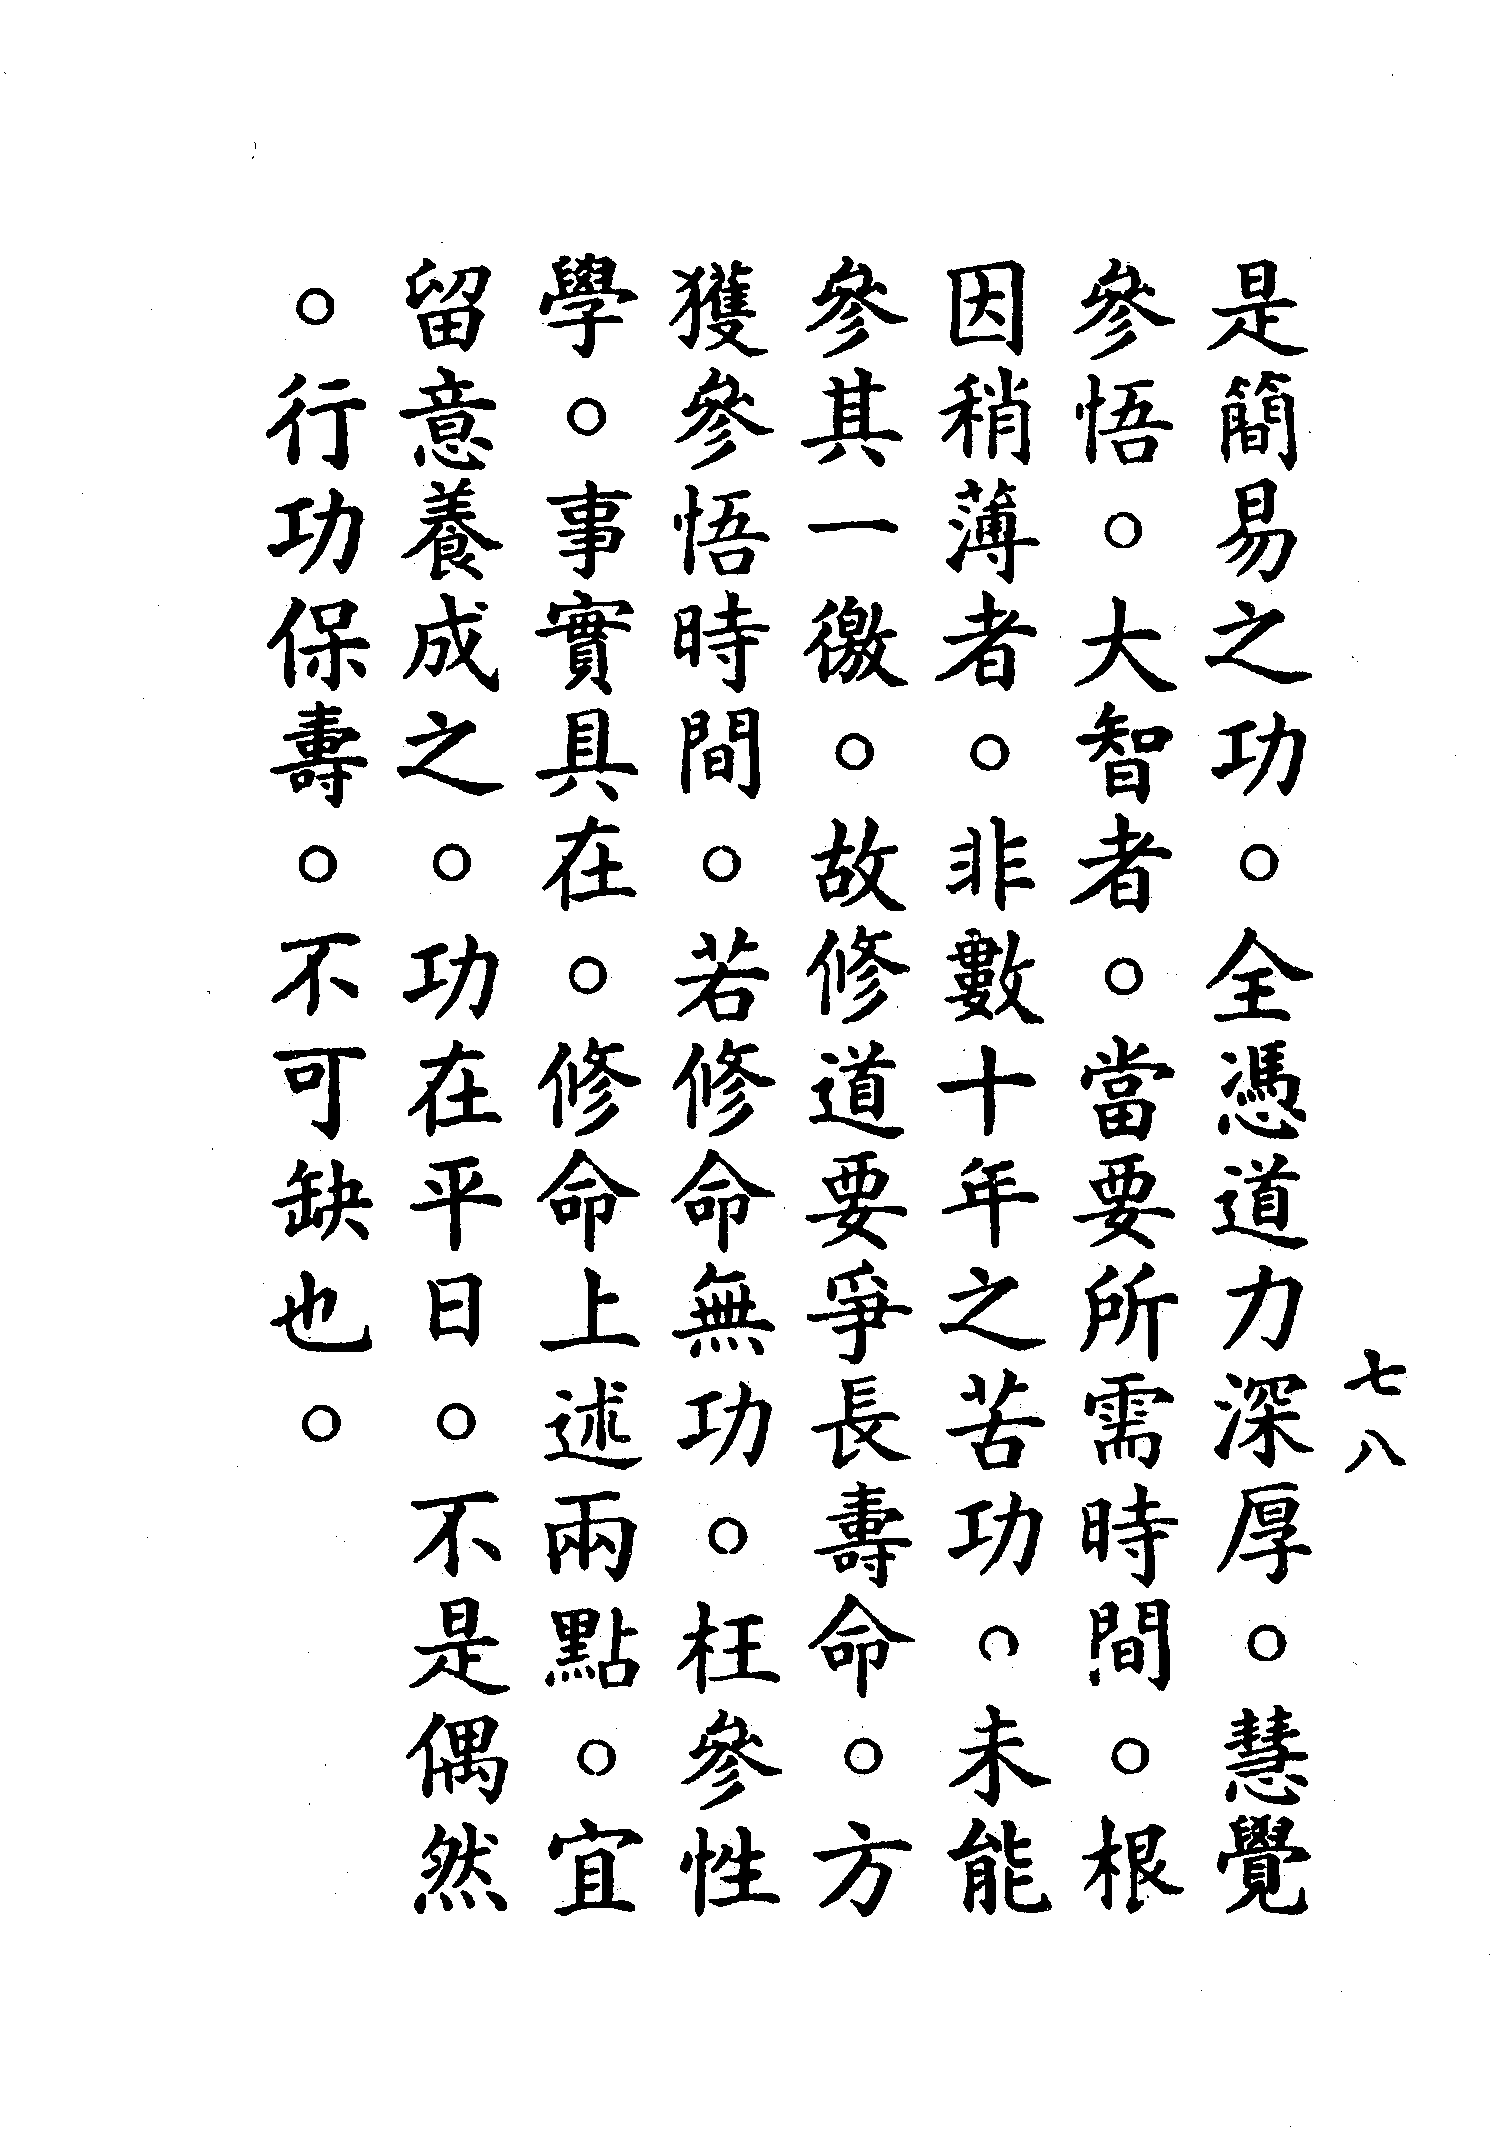 七八
是簡易之功。全憑道力深厚。慧覺
參悟。大智者。當要所需時間。根
因稍薄者。非數十年之苦功。未能
參其一徼。故修道要爭長壽命。方
獲參悟時間。若修命無功。枉參性
學。事實具在。修命上述兩點。宜
留意養成之。功在平日。不是偶然
。行功保壽。不可缺也。